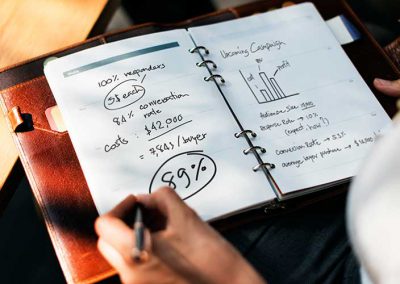 100% responders
5$ each
84% conversation
rate
costs : $42,000
buyer
89%
Upcoming Campaign
profit
Audience Size
Response Rate → 10%
(expect, how?)
Conversion Rate → 5.2%
average buyer purchase →